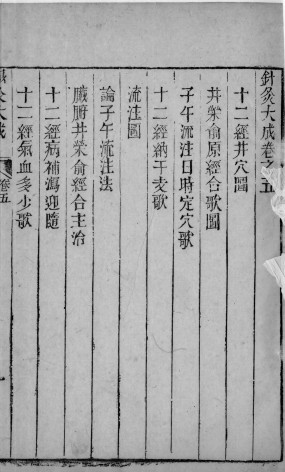 針灸大成卷之五
十二經井穴圖
井滎俞原經合歌圖
子午流注日時定穴歌
十二經納干支歌
流注圖
論子午流注法
臟腑井滎俞經合主治
十二經病補瀉迎隨
十二經氣血多少歌
卷五